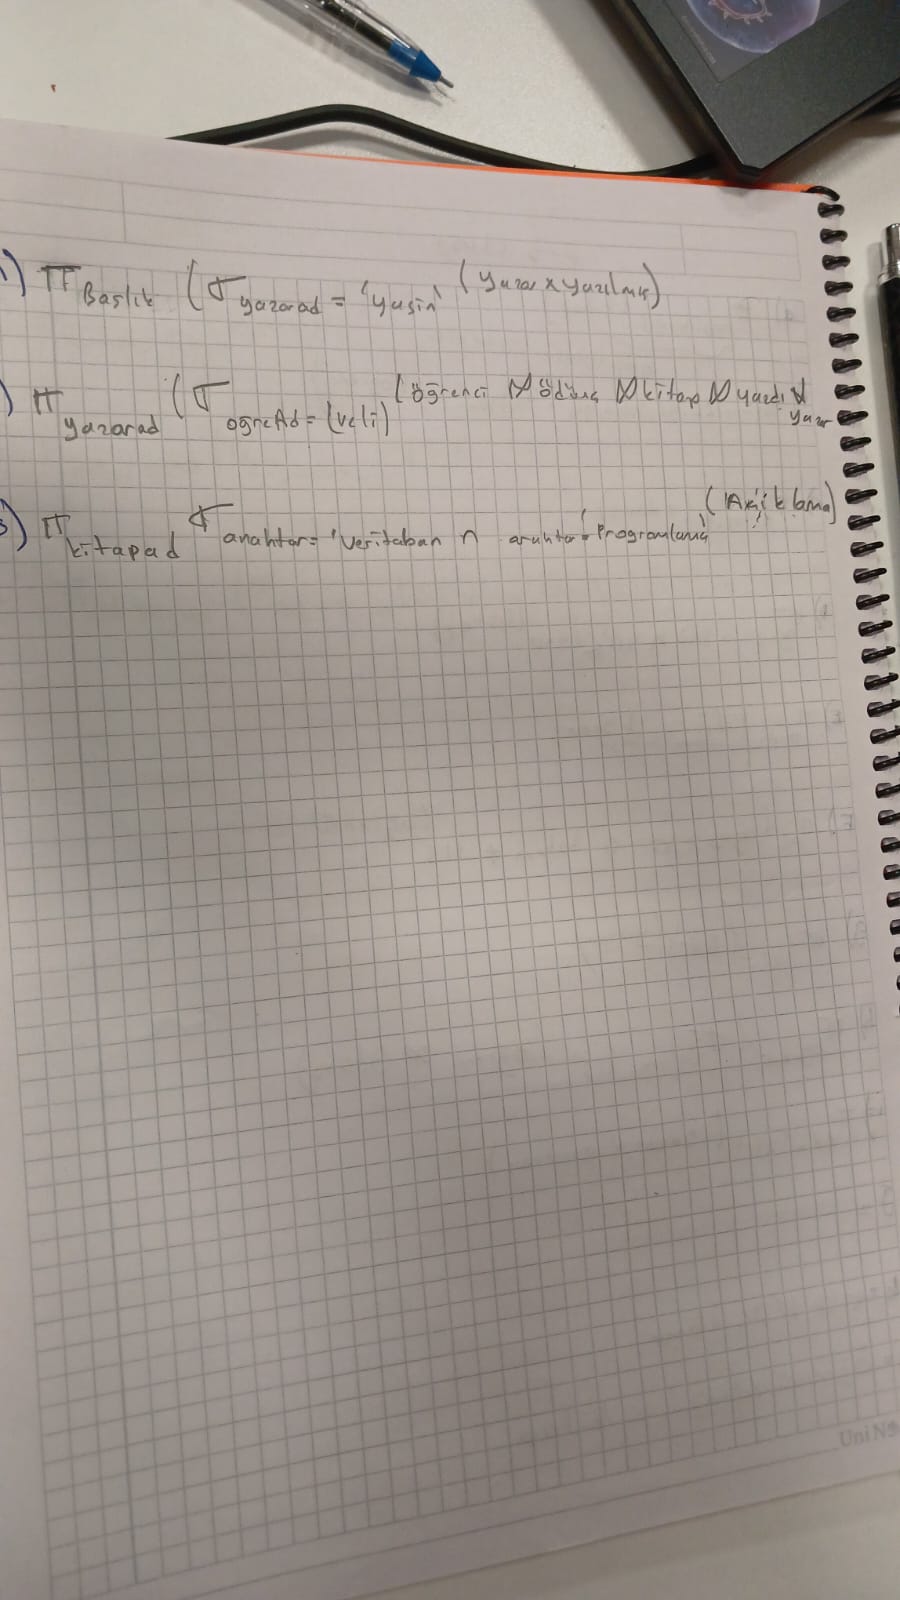 ) π Başlık (σ yazarad = 'yasin' (yazar x yazılmış)
) π yazarad (σ öğreAd = (veli) (öğrenci ⋈ ödünç ⋈ kitap ⋈ yazdı ⋈ yazar
3) π kitapad σ anahtar = 'veritaban ∩ anahtar = 'Programlama' (Açıklama)